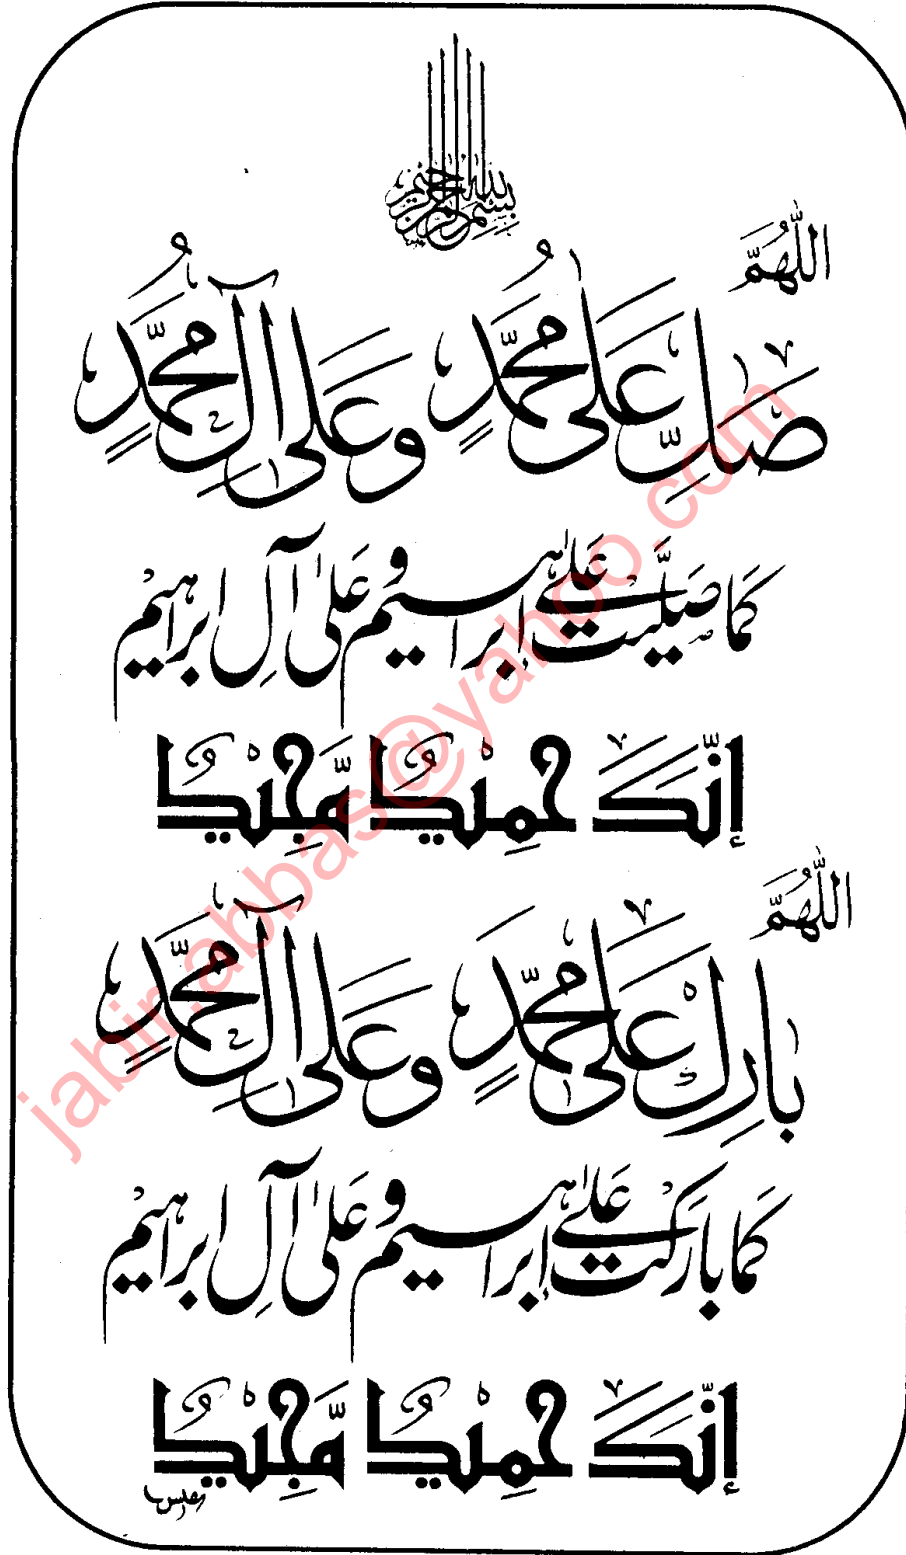 بسم الله الرحمن الرحيم
اللَّهُمَّ
صَلِّ عَلىٰ مُحَمَّدٍ وَعَلىٰ آلِ مُحَمَّدٍ
كَمَا صَلَّيْتَ عَلىٰ إبراهيم وَعَلىٰ آلِ ابراهيم
إنَّكَ حَمِيْدٌ مَّجِيْدٌ
اللَّهُمَّ
بَارِكْ عَلىٰ مُحَمَّدٍ وَعَلىٰ آلِ مُحَمَّدٍ
كَمَا بَارَكْتَ عَلىٰ إبراهيم وَعَلىٰ آلِ ابراهيم
إنَّكَ حَمِيْدٌ مَّجِيْدٌ
jabir.abbas@yahoo.com